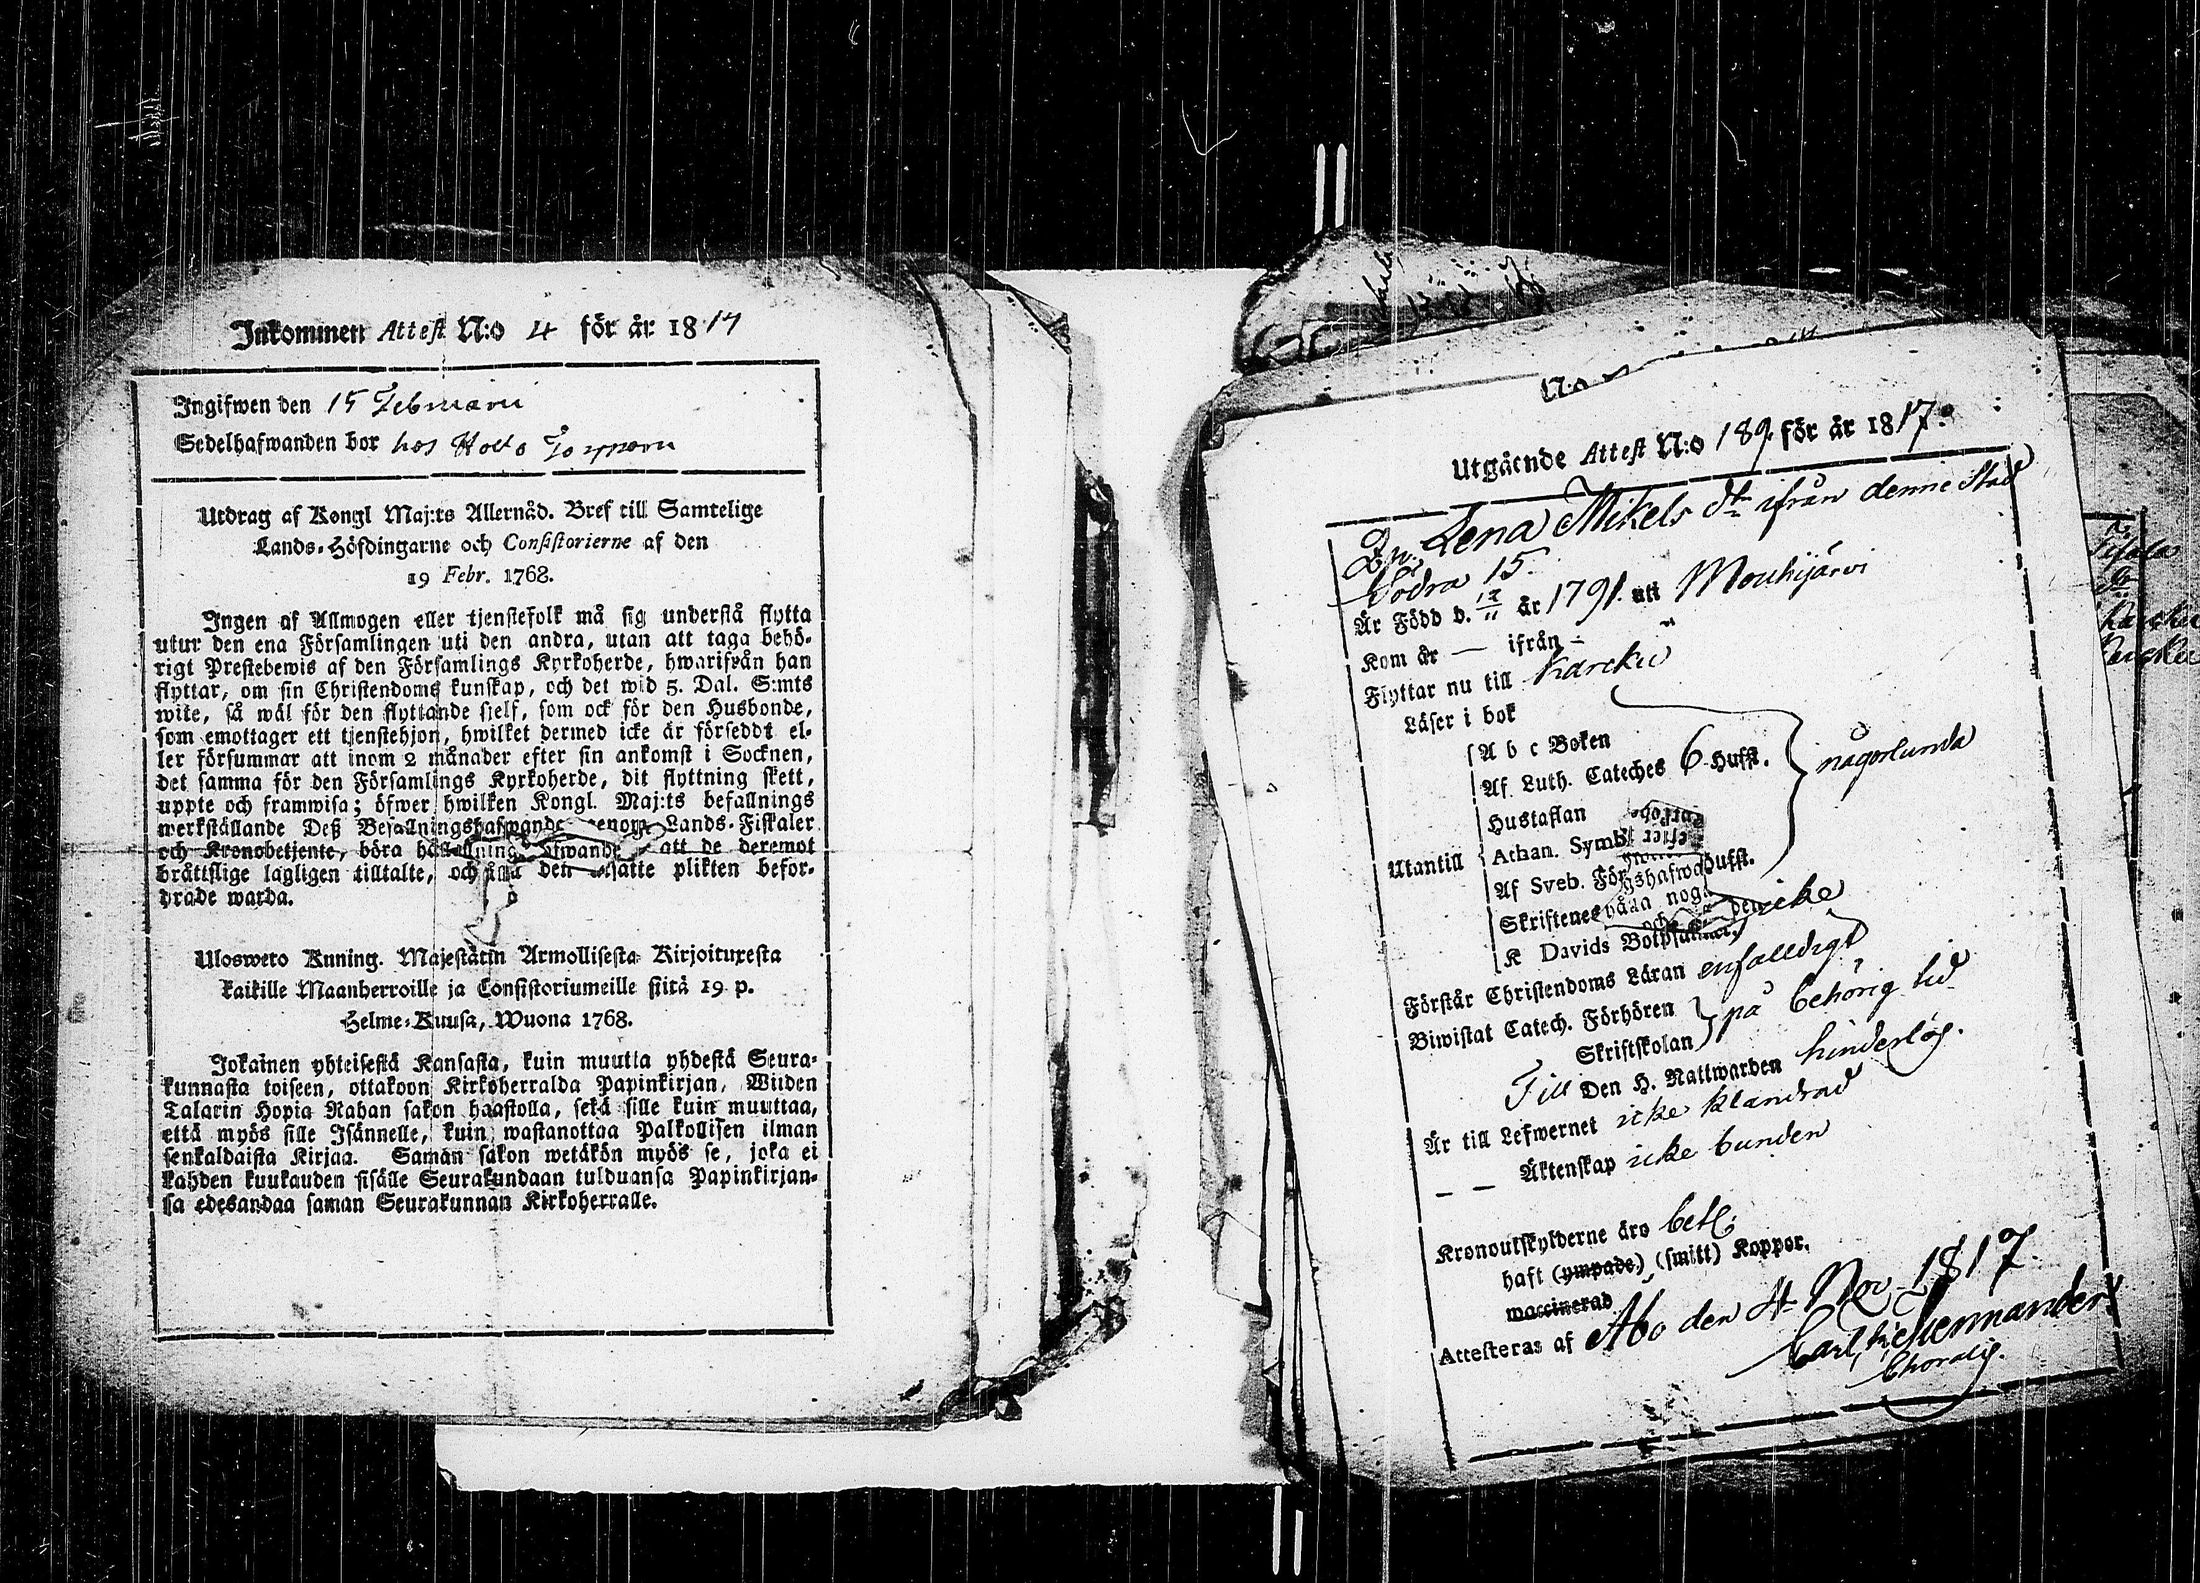 Inkommen Attest N:o 4 för år 1817
Ingifwen den 15 Februarii
Sedelhafwanden bor hos
Utdrag af Kongl Maj:ts Allernåd. Bref till Samtelige
Lands-Höfdingarne och Consistorierne af den
19 Febr. 1768.
Ingen af Allmogen eller tjenstefolk må sig understå flytta
utur den ena Församlingen uti den andra, utan att taga behö-
rigt Prestebewis af den Församlings Kyrkoherde, hwarifrån han
flyttar, om sin Christendoms kunskap, och det wid 5. Dal. S:mts
wite, så wäl för den flyttande sjelf, som ock för den Husbonde,
som emottager ett tjenstehjon, hwilket dermed icke är förseddt el-
ler försummar att inom 2 månader efter sin ankomst i Socknen,
det samma för den Församlings Kyrkoherde, dit flyttning skett,
uppte och framwisa; öfwer hwilken Kongl. Maj:ts befallnings
werkställande Deß Befallningshafwande genom Lands-Fiskaler
och Kronobetjente, böra hafwande att de deremot
bråttslige lagligen tilltalte, och den satte plikten befor-
drade warda.
Ulosweto Kuning. Majestätin Armollisesta Kirjoituxesta
kaikille Maanherroille ja Consistoriumeille siitä 19 p.
Helme-Kuusa, Wuona 1768.
Jokainen yhteisestä Kansasta, kuin muutta yhdestä Seura-
kunnasta toiseen, ottakoon Kirkoherralda Papinkirjan, Wiiden
Talarin Hopia Rahan sakon haastolla, sekä sille kuin muuttaa,
että myös sille Isännelle, kuin wastanottaa Palkollisen ilman
senkaldaista Kirjaa. Saman sakon wetäkön myös se, joka ei
kahden kuukauden sisälle Seurakundaan tulduansa Papinkirjan-
sa edesandaa saman Seurakunnan Kirkoherralle.
Utgående Attest N:o 189 för år 1817.
Lena Mikels dr ifrån denne Stad
Södra 15.
Är Född d. 12/11 år 1791. uti Mouhijärvi
Kom år — ifrån -
Flyttar nu till Karcku
Läser i bok
A b c Boken
Af Luth. Cateches 6 Hufst. någorlunda
Hustaflan
Utantill Athan. Symb.
Af Sveb. För Hufst.
Skriftenes
K Davids Botpsalmer icke
Förstår Christendoms Läran enfalldigt
Biwistat Catech. Förhören
Skriftskolan på behörig tid
Till Den H. Nattwarden hinderlös.
Är till Lefwernet icke klandrad
— — Äktenskap icke bunden
Kronoutskylderne äro betl:
haft (ympade) (smitt) Koppor.
waccinerad
Attesteras af Åbo den 4 Nov 1817